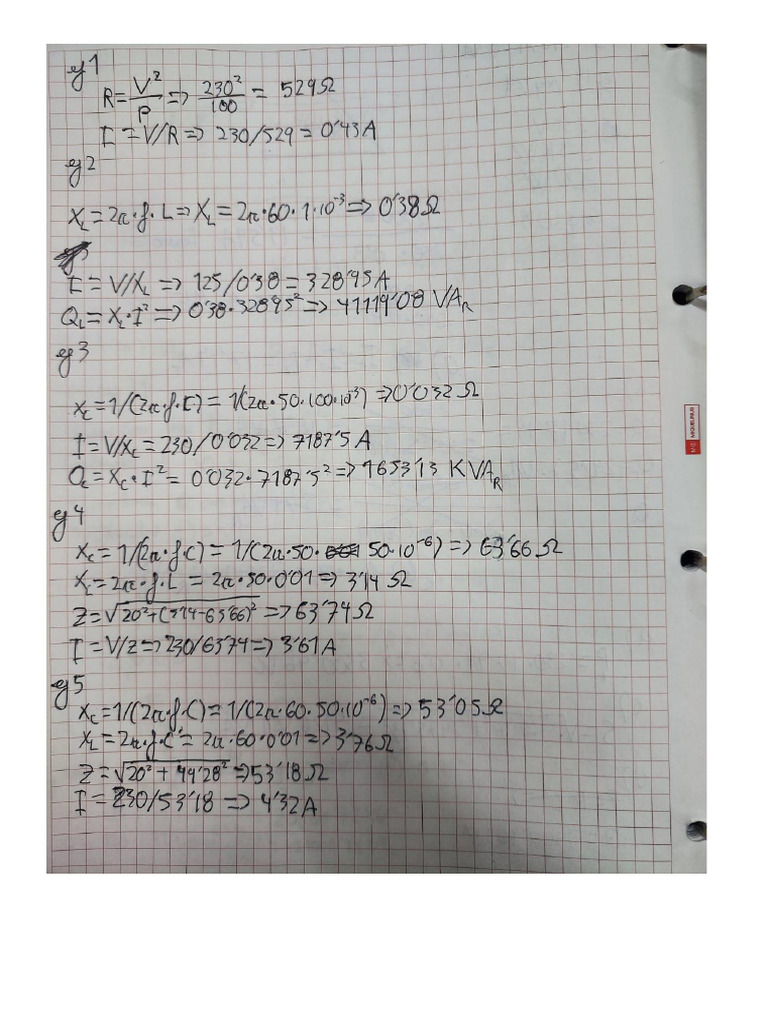 ej1
R=V²/P => 230²/100 = 529Ω
I=V/R=> 230/529=0'43A
ej2
X_L=2π·f·L=>X_L=2π·60·1·10⁻³=>0'38Ω
I=V/X_L => 125/0'38=328'95A
Q_L=X_L·I²=>0'38·328'95²=>41119'08 VA_R
ej3
X_C=1/(2π·f·C)=1/(2π·50·100·10⁻³)=>0'032Ω
I=V/X_C=230/0'032=>7187'5 A
Q_C=X_C·I²=0'032·7187'5²=>1653'13 KVA_R
ej4
X_C=1/(2π·f·C)=1/(2π·50·50·10⁻⁶)=>63'66Ω
X_L=2π·f·L=2π·50·0'01=>3'14Ω
Z=√20²+(3'14-63'66)²=>63'74Ω
I=V/Z=>230/63'74=>3'61A
ej5
X_C=1/(2π·f·C)=1/(2π·60·50·10⁻⁶)=>53'05Ω
X_L=2π·f·C=2π·60·0'01=>3'76Ω
Z=√20²+44'28²=>53'18Ω
I=230/53'18=>4'32A
MIQUELRIUS